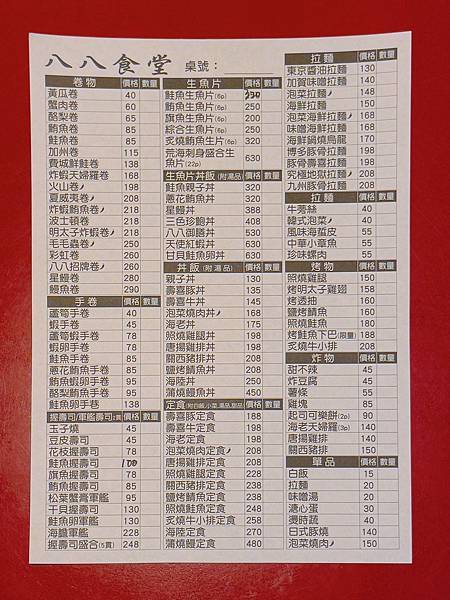 八八食堂 桌號：
卷物 價格 數量
黃瓜卷 40
蟹肉卷 60
酪梨卷 65
鮪魚卷 85
鮭魚卷 85
加州卷 115
費城鮮鮭卷 138
炸蝦天婦羅卷 168
火山卷 198
夏威夷卷 208
炸蝦鮪魚卷 208
波士頓卷 218
明太子炸蝦卷 218
毛毛蟲卷 250
彩虹卷 260
八八招牌卷 260
星鰻卷 280
鰻魚卷 290
手卷 價格 數量
蘆筍手卷 40
蝦手卷 45
蘆筍蝦手卷 78
蝦卵手卷 78
鮭魚手卷 88
蔥花鮪魚手卷 88
鮪魚蝦卵手卷 93
酪梨鮪魚手卷 98
鮭魚卵手巷 138
握壽司/軍艦壽司 價格 數量
玉子燒 45
豆皮壽司 45
花枝握壽司 78
鮭魚握壽司 100
旗魚握壽司 78
鮪魚握壽司 88
松葉蟹膏軍艦 95
干貝握壽司 130
鮭魚卵軍艦 130
海膽軍艦 228
握壽司盛合(5貫) 248
生魚片 價格 數量
鮭魚生魚片(6p)
鮪魚生魚片(6p) 250
旗魚生魚片(6p) 200
綜合生魚片(6p) 250
炙燒鮪魚生片(6p) 320
荒海刺身盛合生魚片(22p) 630
生魚片丼飯(附湯品) 價格 數量
鮭魚親子丼 320
蔥花鮪魚丼 320
星鰻丼 388
三色珍鮑丼 408
八八御膳丼 530
天使紅蝦丼 630
甘貝鮭魚卵丼 630
丼飯(附湯品) 價格 數量
親子丼 130
壽喜豚丼 135
壽喜牛丼 145
泡菜燒肉丼 165
海老丼 175
照燒雞腿丼 198
唐揚雞排丼 198
關西豬排丼 208
鹽烤鯖魚丼 208
海陸丼 250
蒲燒鰻魚丼 450
定食 價格 數量
壽喜豚定食 188
壽喜牛定食 198
海老定食 198
泡菜燒肉定食 208
唐揚雞排定食 228
照燒雞腿定食 228
關西豬排定食 238
鹽烤鯖魚定食 238
照燒鮭魚定食 248
炙燒牛小排定食 258
海陸定食 270
蒲燒鰻定食 480
拉麵 價格 數量
東京醬油拉麵 130
加賀味噌拉麵 140
泡菜拉麵 148
海鮮拉麵 150
泡菜海鮮拉麵 168
味噌海鮮拉麵 168
海鮮鍋燒烏龍 170
博多豚骨拉麵 198
豚骨壽喜拉麵 198
究極地獄拉麵 208
九州豚骨拉麵 198
拉麵 價格 數量
牛蒡絲 40
韓式泡菜 40
風味海蜇皮 55
中華小章魚 55
珍味螺肉 55
烤物 價格 數量
照燒雞腿 150
烤明太子雞翅 158
烤透抽 160
鹽烤鯖魚 160
照燒鮭魚 180
烤鮭魚下巴(限量) 188
炙燒牛小排 208
炸物 價格 數量
甜不辣 45
炸豆腐 45
薯條 55
雞塊 85
起司可樂餅(2p) 90
海老天婦羅(3p) 140
唐揚雞排 140
關西豬排 150
單品 價格 數量
白飯 15
拉麵 20
味噌湯 20
溏心蛋 30
燙時蔬 40
日式豚燒 140
泡菜燒肉 150